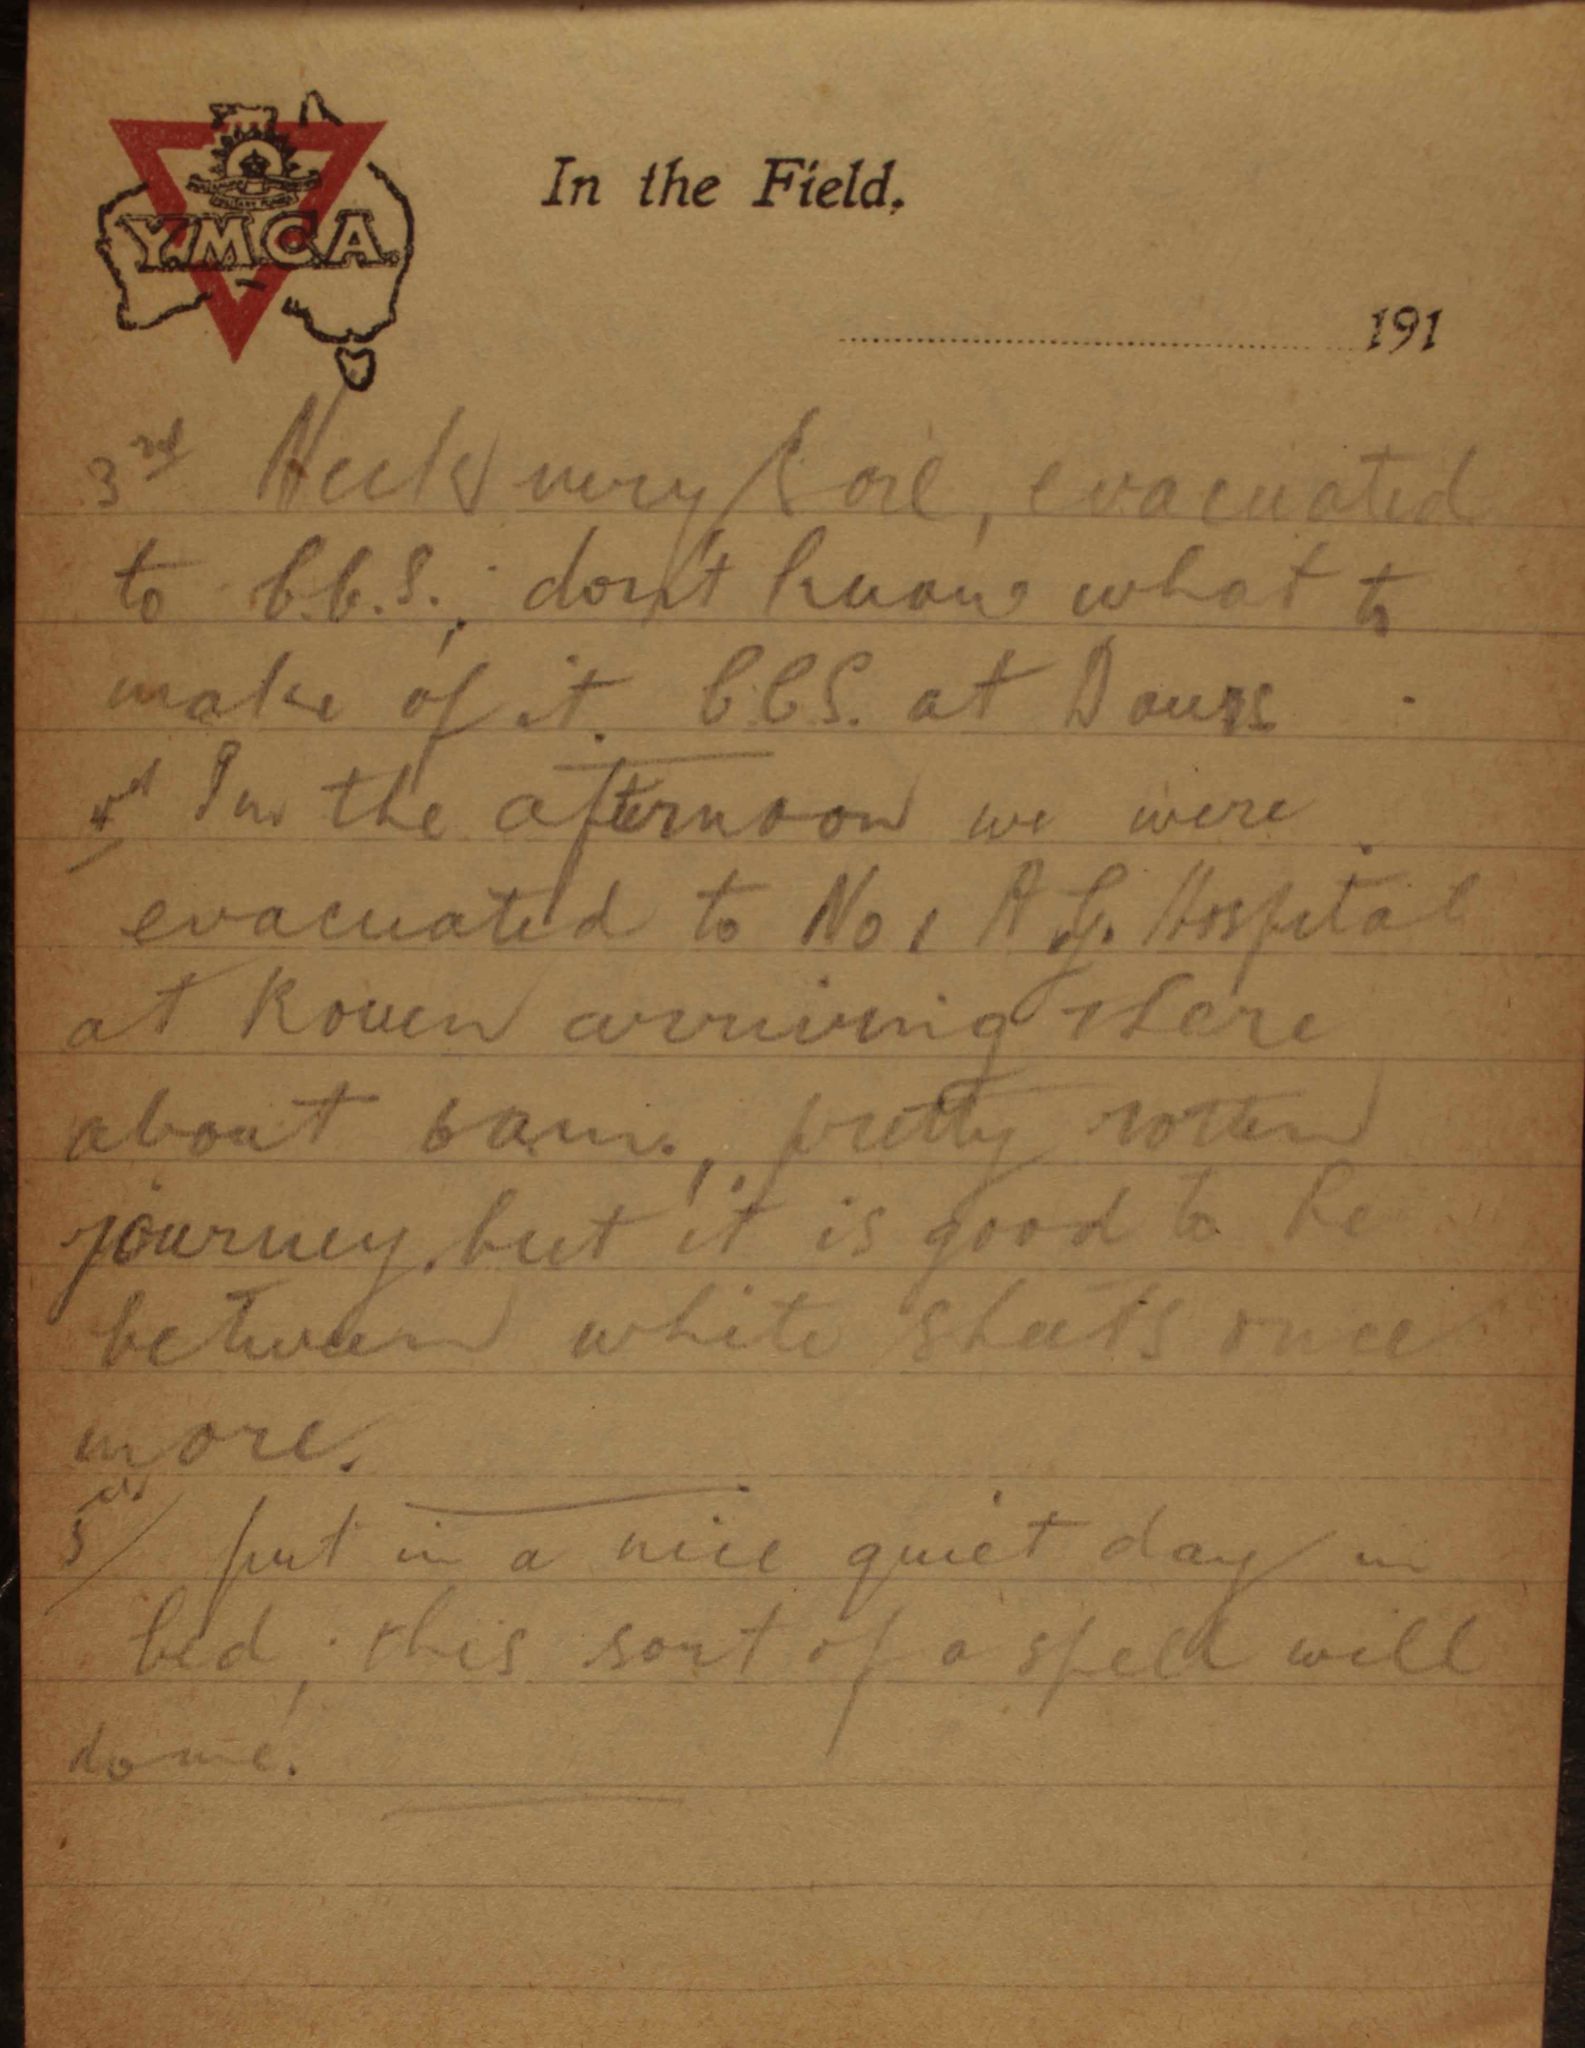 Y.M.C.A.
In the Field.
191
3rd Neck very sore, evacuated
to C.C.S.; don't know what to
make of it. C.C.S. at Dours
4th In the afternoon we were
evacuated to No 1 A.G. Hospital
at Rouen arriving there
about 6am., pretty rotten
journey, but it is good to be
between white sheets once
more.
5th/ put in a nice quiet day in
bed; this sort of a spell will
do me.